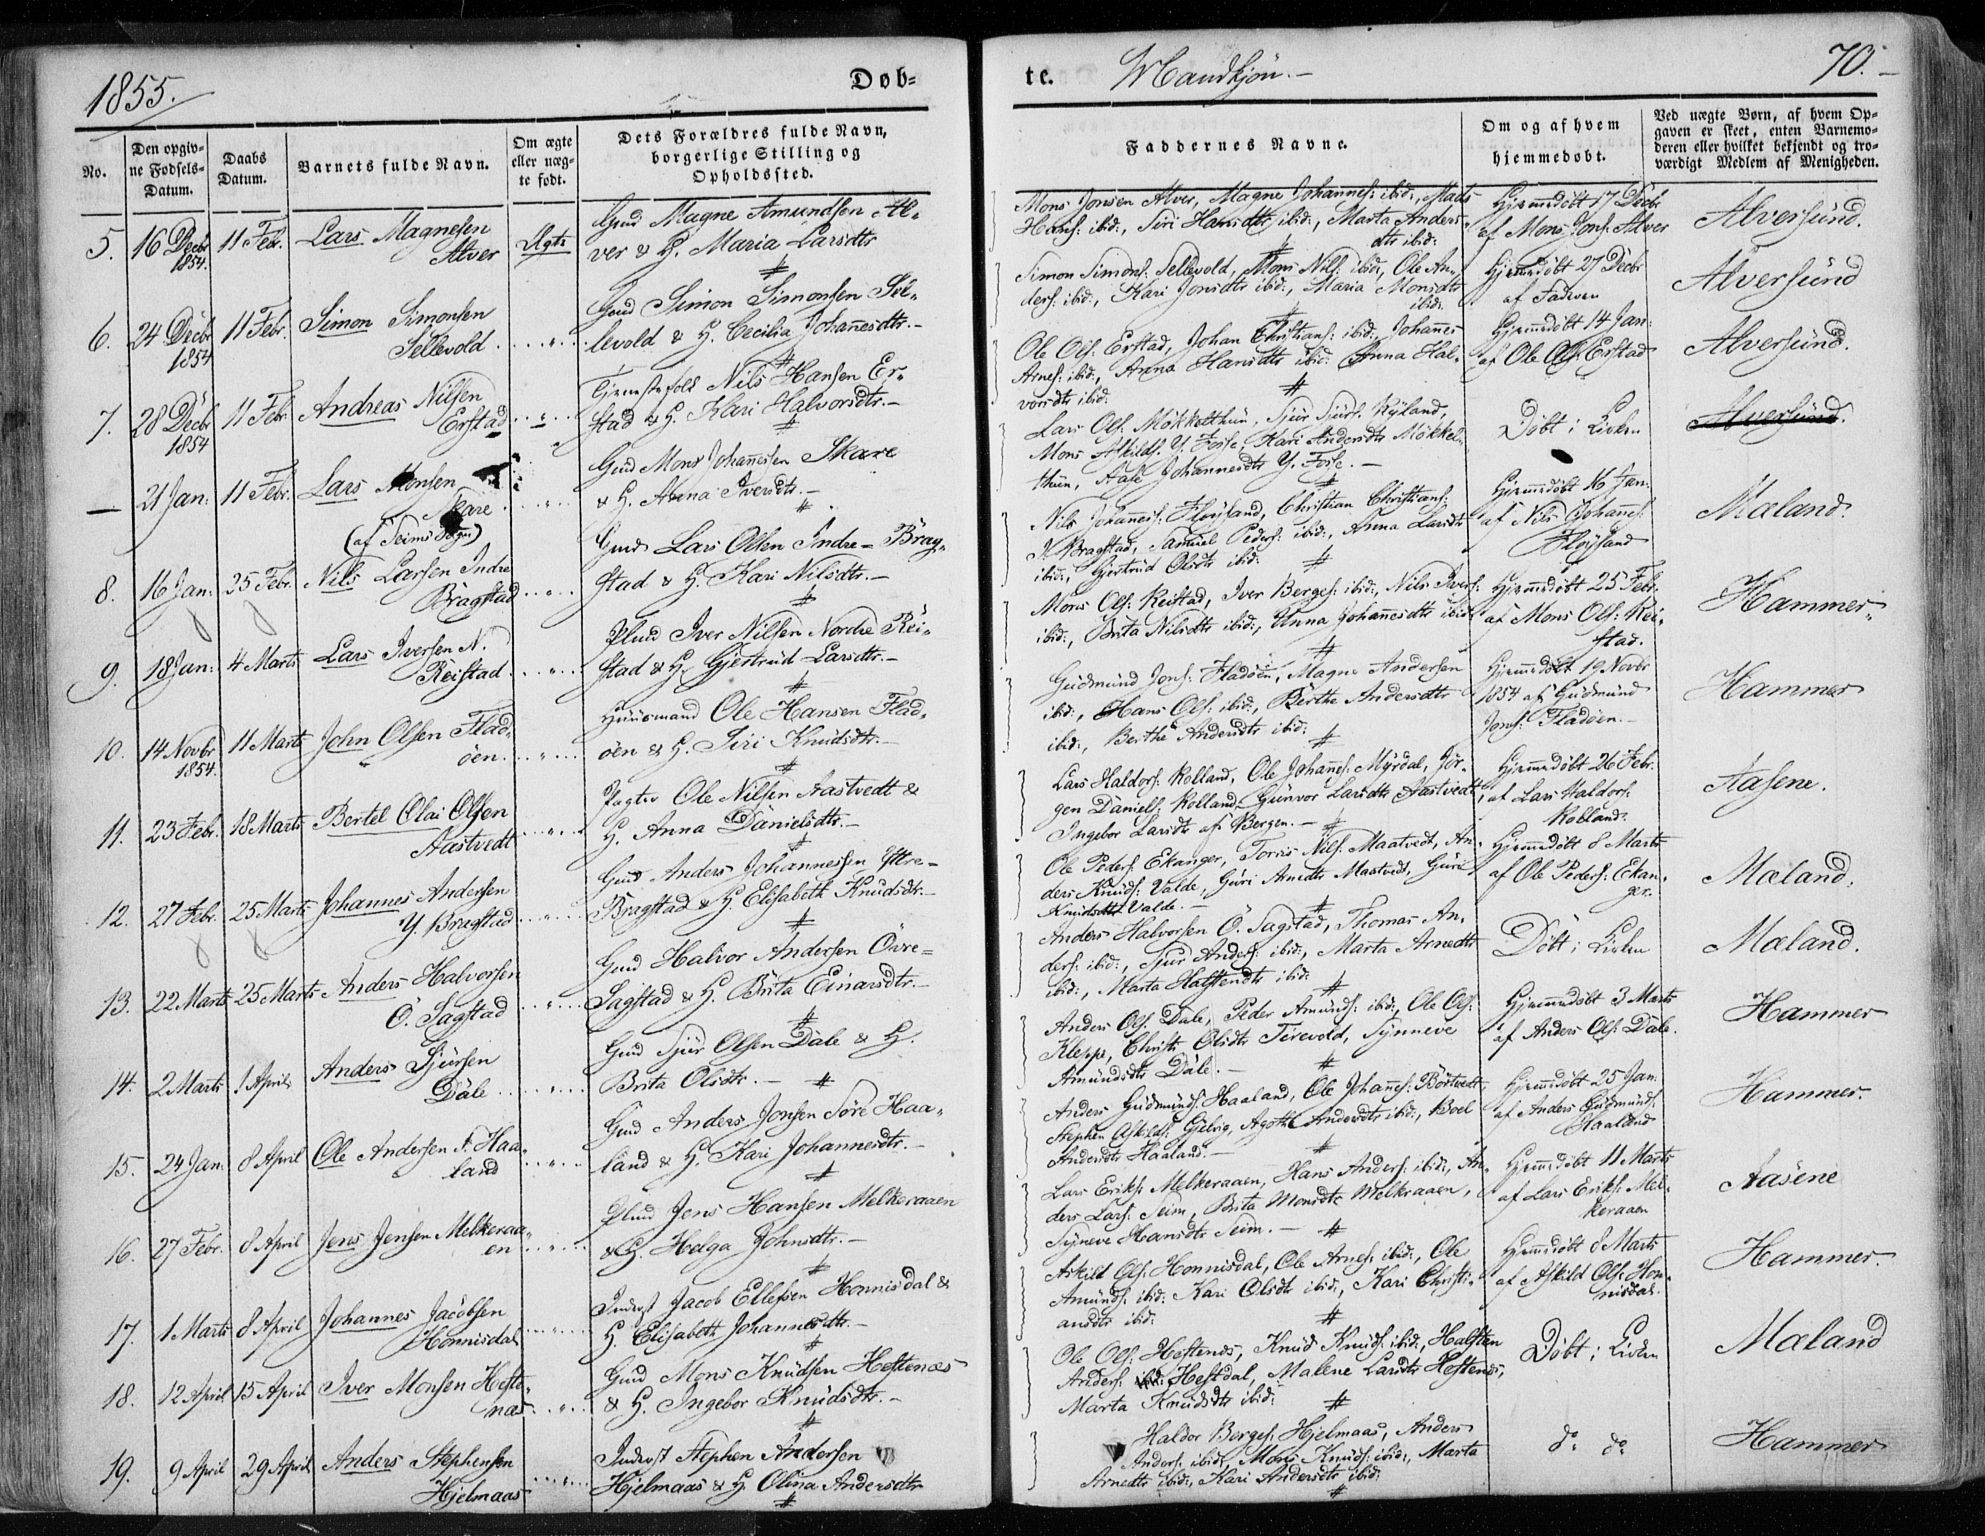 1855.
Døb=
te. Mandkjön.
70.
No.
Den opgiv-
ne Fødsels-
Datum.
Daabs
Datum.
Barnets fulde Navn.
Om ægte
eller uæg-
te født.
Dets Forældres fulde Navn,
borgerlige Stilling og
Opholdssted.
Faddernes Navne.
Om og af hvem
hjemmedøbt.
Ved uægte Børn, af hvem Op-
gaven er skeet, enten Barnemo-
deren eller hvilket bekjendt og tro-
værdigt Medlem af Menigheden.
5. 16 Decbr 1854. 11 Febr. Lars Magnesen
Alver
Ægte
Gmd Magne Amundsen Al-
ver & H. Maria Larsdtr
Mons Jonsen Alver, Magne Johannes: ibid:, Mads
Hans: ibid:, Siri Hansdtr ibid:, Marta Anders-
dtr ibid:
Hjemmedöbt 17 Decbr
af Mons Jons: Alver
Alversund.
6. 24 Decbr 1854 11 Febr. Simon Simonsen
Sellevold
Gmd Simon Simonsen Sel-
levold & H. Cecilia Johannesdtr.
Simon Simons: Sellevold, Mons Nils: ibid:, Ole An-
ders: ibid:, Kari Jonsdtr ibid:, Maria Monsdtr
ibid:
Hjemmedöbt 27 Decbr
af Faderen
Alversund
7. 28 Decbr 1854 11 Febr. Andreas Nilsen
Erstad
Nils Hansen Er-
stad & H. Kari Halvorsdtr.
Ole Ols: Erstad, Johan Christians: ibid: Johannes
Arnes: ibid:, Anna Hansdtr ibid: Anna Hal-
vorsdtr ibid:
Hjemmedöbt 14 Jan:
af Ole Ols: Erstad
Alversund.
— 21 Jan: 11 Febr. Lars Monsen
Skare
(af Seims Sogn)
Gmd Mons Johannesen Skare
& H. Anna Iversdtr.
Lars Ols: Mökkelthun, Sjur Sjurs: Ryland,
Mons Askilds: Y. Fosse, Kari Andersdtr Mökkel-
thun, Aase Johannesdtr Y. Fosse.
Döbt i Kirken
Alversund.
8. 16 Jan: 25 Febr. Nils Larsen Indre
Bragstad
Gmd Lars Olsen Indre- Brag-
stad & H. Kari Nilsdtr.
Nils Johannes: Flöysand, Christian Christians:
I. Bragstad, Samuel Peders: ibid:, Anna Larsdtr
ibid:, Gjertrud Olsdtr ibid:
Hjemmedöbt 16 Jan:
af Nils Johannes:
Flöysand
Mæland.
9. 18 Jan: 4 Marts Lars Iversen N.
Reistad
Iver Nilsen Nordre Rei-
stad & H. Gjertrud Larsdtr.
Mons Ols: Reistad, Iver Berges: ibid:, Nils Ivers:
ibid:, Brita Nilsdtr ibid:, Anna Johannesdtr ibid:
Hjemmedöbt 25 Febr.
af Mons Ols: Rei-
stad.
Hammer
10. 14 Novbr 1854. 11 Marts John Olsen Flad-
öen
Huusmand Ole Hansen Flad-
öen & H. Siri Knudsdtr.
Gudmund Jons: Fladöen, Magne Andersen
ibid:, Hans Ols: ibid:, Berthe Andersdtr
ibid:, Berthe Andersdtr ibid:
Hjemmedöbt 19 Novbr
1854 af Gudmund
Jons: Fladöen.
Hammer
11. 23 Febr. 18 Marts Bertel Olai Olsen
Aastvedt
Ole Nilsen Aastvedt &
H. Anna Danielsdtr.
Lars Haldors: Kolland, Ole Johannes: Myrdal, Jör-
gen Daniels: Kolland, Gunvor Larsdtr Aastvedt,
Ingebor Larsdtr af Bergen.
Hjemmedöbt 26 Febr.
af Lars Haldors:
Kobland.
Aasene.
12. 27 Febr. 25 Marts Johannes Andersen
Y. Bragstad
Gmd Anders Johannessen Yttre-
Bragstad & H. Elisabeth Knudsdtr.
Ole Peders: Ekanger, Torris Nils: Maatvedt, An-
ders Knuds: Valde, Guri Amdtr Mastvedt, Guri
Knudsdtr Valde.
Hjemmedöbt 8 Marts
af Ole Peders: Ekan-
ger.
Mæland.
13. 22 Marts 25 Marts Anders Halvorsen
Ö. Sagstad
Gmd Halvor Andersen Övre-
Sagstad & H. Brita Einarsdtr.
Anders Halvorsen Ö. Sagstad, Thomas An-
ders: ibid:, Sjur Anders: ibid:, Marta Arnedtr
ibid:, Marta Halstendtr ibid:
Döbt i Kirken
Mæland.
14. 2 Marts 1 April Anders Sjursen
Dale
Gmd Sjur Olsen Dale & H.
Brita Olsdtr.
Anders Ols: Dale, Peder Amunds: ibid:, Ole Ols:
Kleppe, Christi Olsdtr Tirevold, Synneve
Amundsdtr Dale.
Hjemmedöbt 3 Marts
af Anders Ols: Dale.
Hammer
15. 24 Jan: 8 April Ole Andersen S. Haa-
land
Gmd Anders Jonsen Söre Haa-
land & H. Kari Johannesdtr.
Anders Gudmunds: Haaland, Ole Johannes: Börtvedt,
Stephen Askilds: Gjelvig, Agothe Andersdtr ibid:, Boel
Andersdtr Haaland.
Hjemmedöbt 25 Jan:
af Anders Gudmunds:
Haaland
Hammer.
16. 27 Febr. 8 April Jens Jensen Melkeraa-
en
Jens Hansen Melkeraaen
& H. Helga Johnsdtr.
Lars Eriks: Melkeraaen, Hans Anders: ibid:, An-
ders Lars: Seim, Brita Monsdtr Melkraaen,
Synneve Hansdtr Seim.
Hjemmedöbt 11 Marts
af Lars Eriks: Mel-
keraaen
Aasene
17. 1 Marts 8 April Johannes Jacobsen
Honnisdal
Inderst Jacob Ellefsen Honnisdal &
H. Elisabeth Johannesdtr.
Askild Ols: Honnisdal, Ole Arnes: ibid:, Ole
Amunds: ibid: Kari Olsdtr ibid:, Kari Christi-
andtr ibid:
Hjemmedöbt 8 Marts
af Askild Ols: Hon-
nisdal.
Hammer.
18. 12 April 15 April Iver Monsen Heste-
næs
Gmd Mons Knudsen Hestenæs
& H. Ingebor Knudsdtr.
Ole Ols: Hestenes, Knud Knuds: ibid:, Halsten
Anders: Hestdal, Malene Larsdtr Hestenes,
Marta Knudsdtr ibid:
Döbt i Kirken
Mæland
19. 9 April 29 April Anders Stephensen
Hjelmaas
Inderst Stephen Andersen
Hjelmaas & H. Olina Andersdtr
Haldor Berges: Hjelmaas, Anders
Anders: ibid:, Mons Knuds: ibid:, Marta
Arnedtr ibid:, Kari Andersdtr ibid:
do do
Hammer